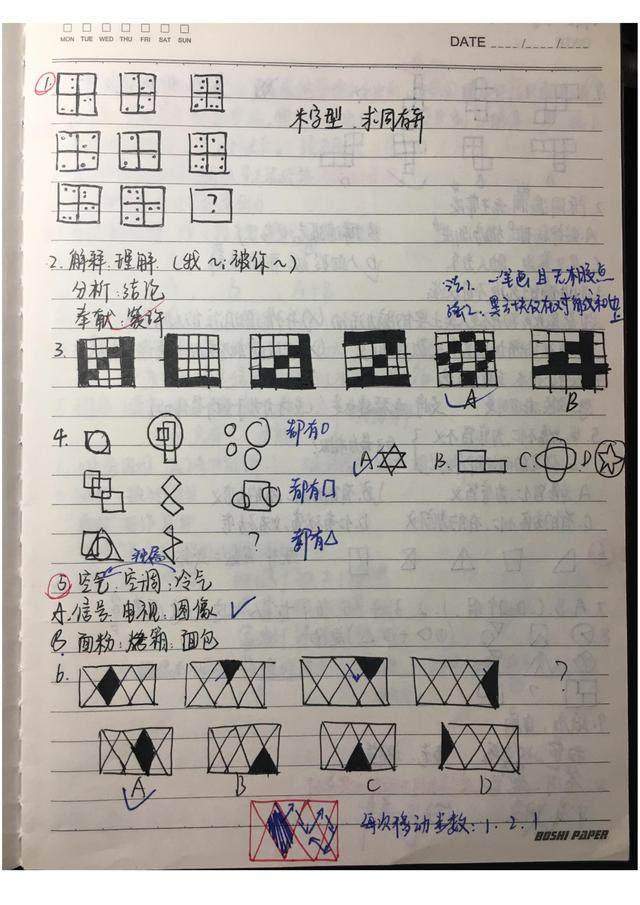 MON TUE WED THU FRI SAT SUN
DATE ____/____/____
①
米字型、求同存异
?
2. 解释:理解 (我~;被你~)
分析:结论
奉献:赞许
法1. 一笔画且无
法2. 黑方块仅有
3.
A B
4. 都有○
A B. C. D
都有□
? 都有△
⑤ 空气:空调:冷气
A. 信号:电视:图像 ✓
B 面粉:烤箱:面包
6.
?
A B C D
每次移动步数:1.2.1
BOSHI PAPER